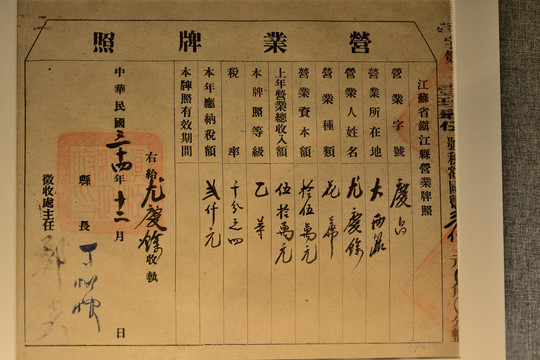 營業牌照
江蘇省鎮江縣營業牌照
營業字號 慶
營業所在地 大西路
營業人姓名 尤慶餘
營業種類 花
營業資本額 拾伍萬元
上年營業總收入額 伍拾萬元
本牌照等級 乙等
稅率 千分之四
本年應納稅額 貳仟元
本牌照有效期間
右給尤慶餘收執
中華民國三十四年十二月 日
縣長
徵收處主任